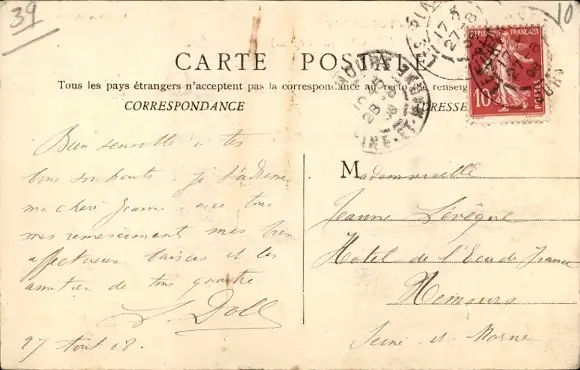 39
10
CARTE POSTALE
Tous les pays étrangers n'acceptent pas la correspondance au recto se renseig
CORRESPONDANCE
ADRESSE
REPUBLIQUE FRANÇAISE
10
POSTES
Bien sensible à tes
bons souhaits, je t'adresse
ma chère Jeanne, avec tous
mes remerciements mes bien
affectueux baisers et les
amitiés de tous quatre
L. Doll
27 Août 08.
Mademoiselle
Jeanne Lévêque
Hotel de l'Ecu de France
Nemours
Seine et Marne